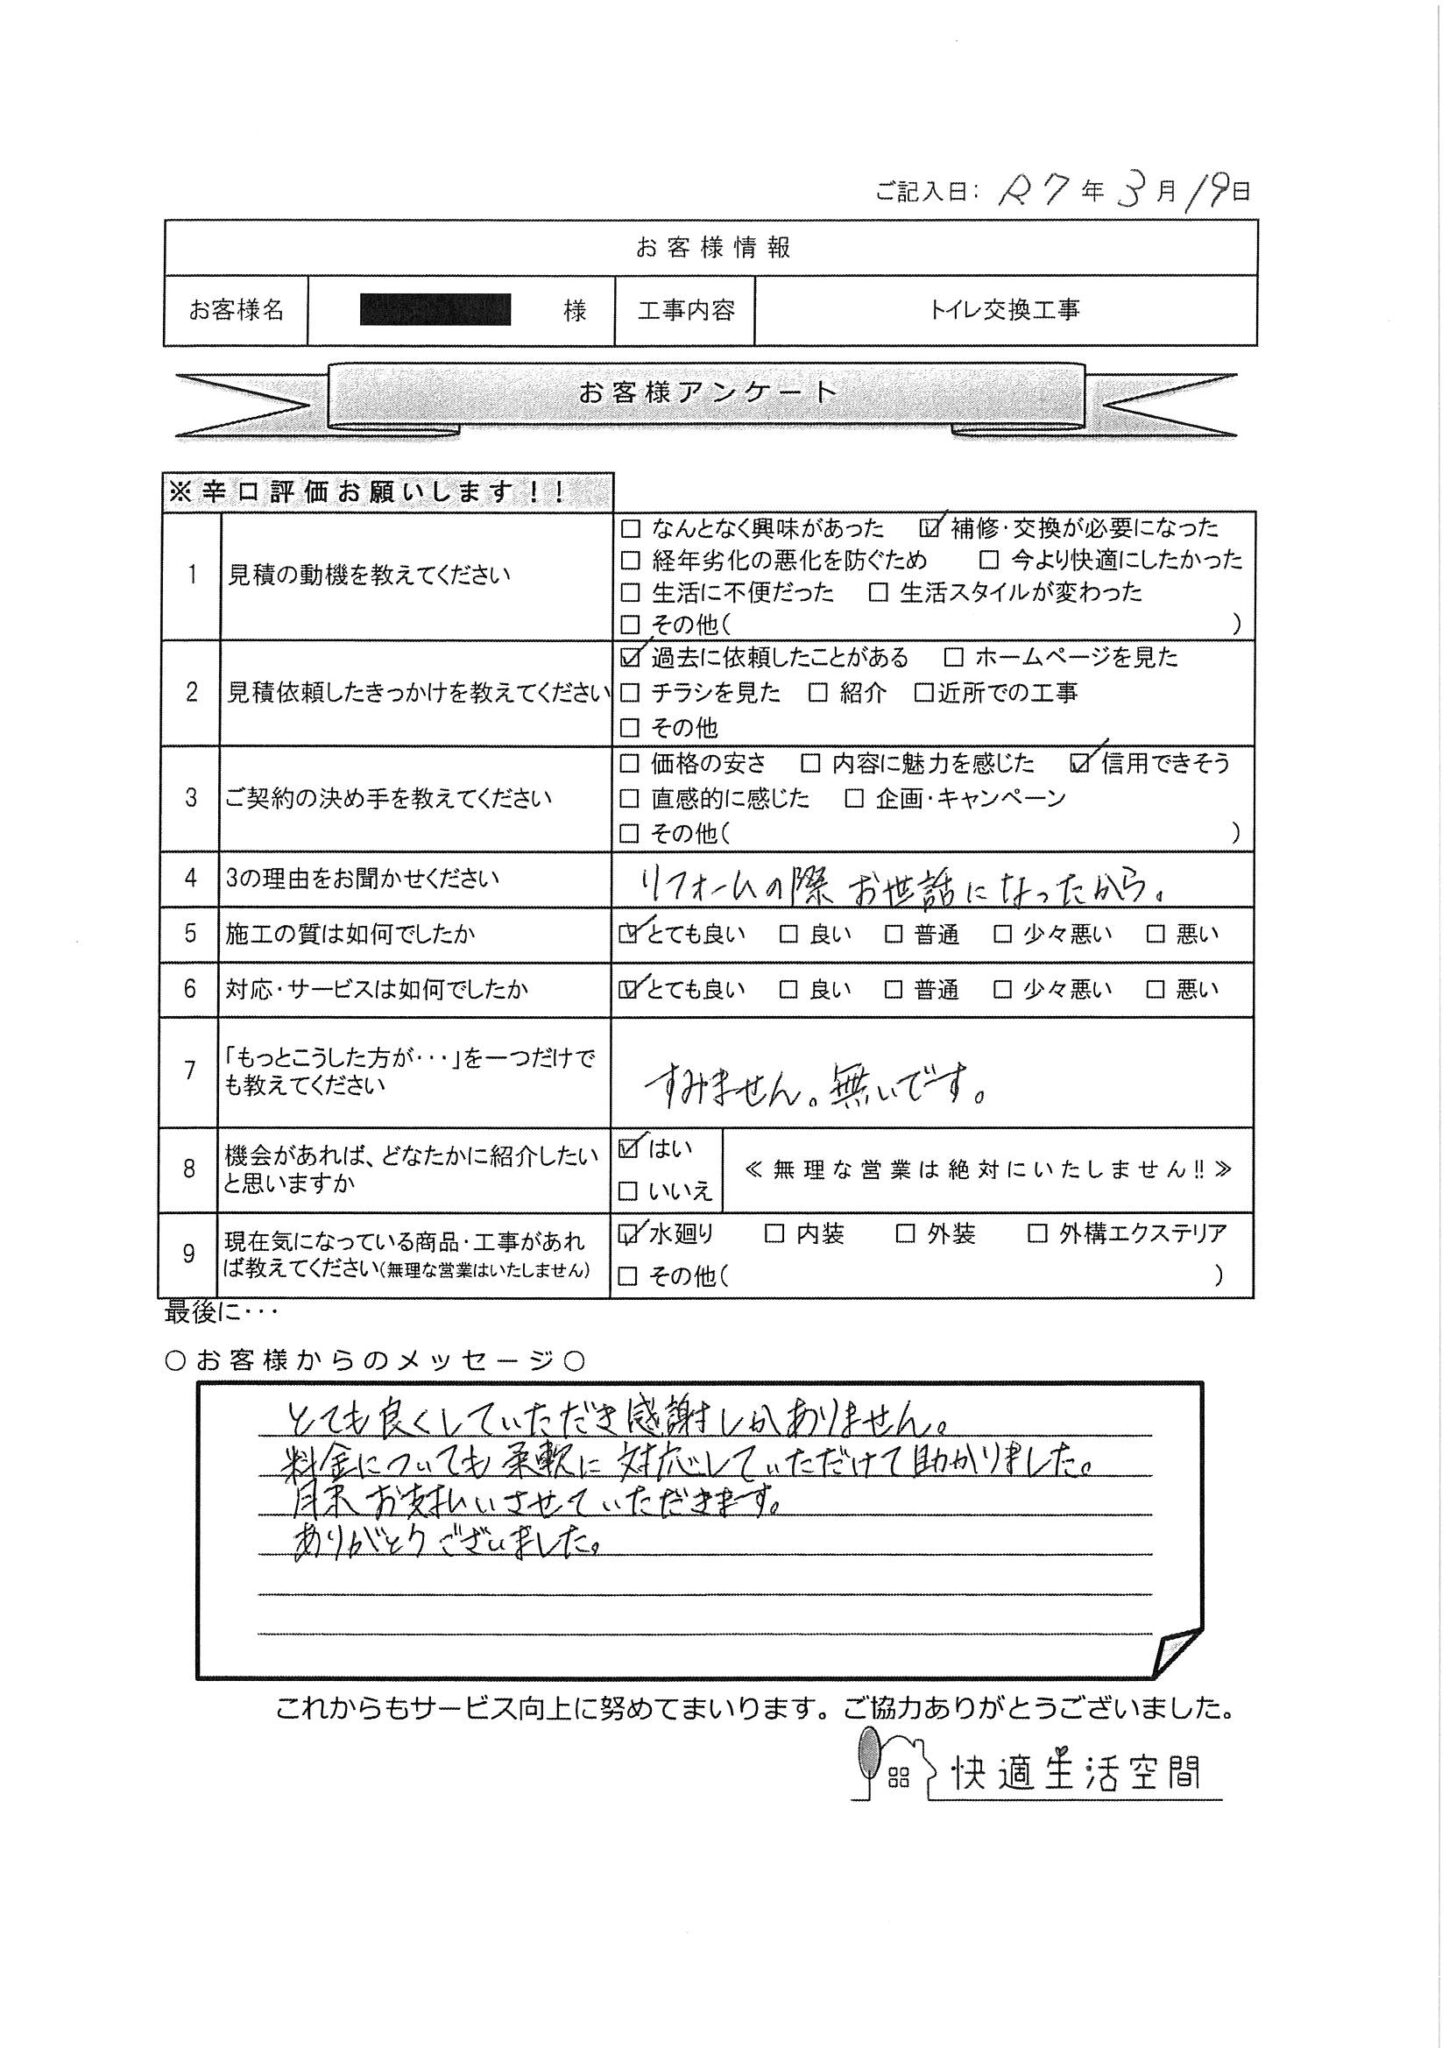 ご記入日: R7年3月19日
お客様情報
お客様名 様 工事内容 トイレ交換工事
お客様アンケート
※辛口評価お願いします!!
1 見積の動機を教えてください
□ なんとなく興味があった ☑ 補修・交換が必要になった
□ 経年劣化の悪化を防ぐため □ 今より快適にしたかった
□ 生活に不便だった □ 生活スタイルが変わった
□ その他( )
2 見積依頼したきっかけを教えてください
☑ 過去に依頼したことがある □ ホームページを見た
□ チラシを見た □ 紹介 □近所での工事
□ その他
3 ご契約の決め手を教えてください
□ 価格の安さ □ 内容に魅力を感じた ☑ 信用できそう
□ 直感的に感じた □ 企画・キャンペーン
□ その他( )
4 3の理由をお聞かせください リフォームの際お世話になったから。
5 施工の質は如何でしたか ☑とても良い □ 良い □ 普通 □ 少々悪い □ 悪い
6 対応・サービスは如何でしたか ☑とても良い □ 良い □ 普通 □ 少々悪い □ 悪い
7 「もっとこうした方が・・・」を一つだけで
も教えてください
すみません。無いです。
8 機会があれば、どなたかに紹介したい
と思いますか
☑ はい
□ いいえ
≪無理な営業は絶対にいたしません!!≫
9 現在気になっている商品・工事があれ
ば教えてください(無理な営業はいたしません)
☑ 水廻り □ 内装 □ 外装 □ 外構エクステリア
□ その他( )
最後に・・・
○お客様からのメッセージ○
とても良くしていただき感謝しかありません。
料金についても柔軟に対応していただけて助かりました。
月末お支払いさせていただきます。
ありがとうございました。
これからもサービス向上に努めてまいります。ご協力ありがとうございました。
快適生活空間